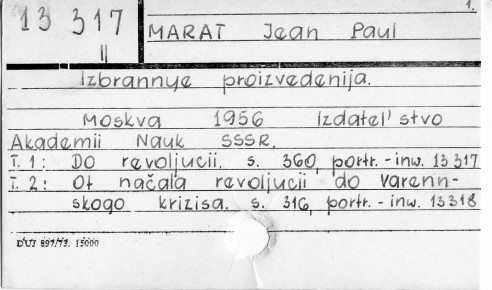 1.
13 317
II
MARAT Jean Paul
Izbrannye proizvedenija.
Moskva 1956 Izdatel'stvo
Akademii Nauk SSSR.
T. 1: Do revoljucii. s. 360, portr. - inw. 13317
T. 2: Ot načala revoljucii do varenn-
skogo krizisa. s. 316, portr. - inw. 13318
DUJ 897/73. 15000